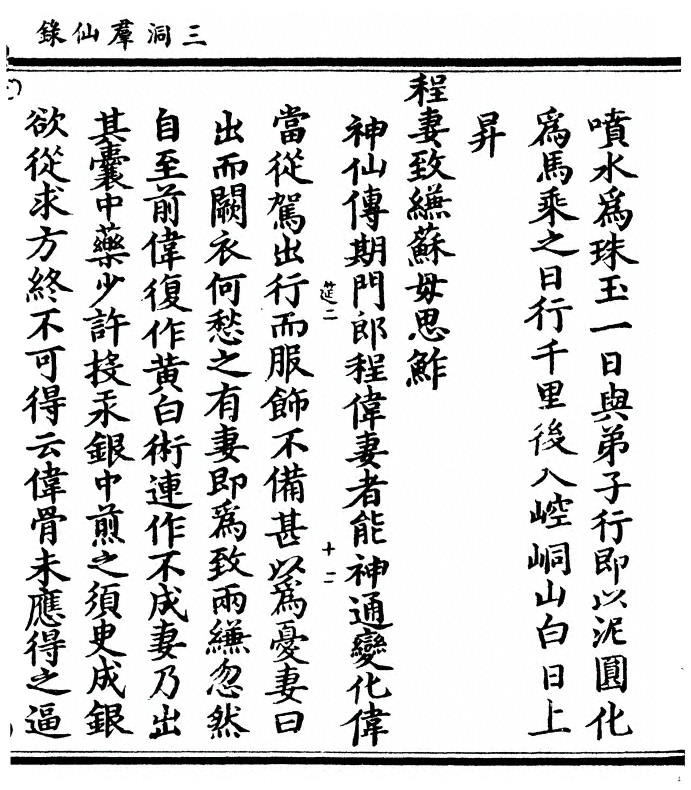 三洞羣仙錄
噴水爲珠玉一日與弟子行即以泥圓化
爲馬乘之日行千里後入崆峒山白日上
昇
程妻致縑蘇母思鮓
神仙傳期門郎程偉妻者能神通變化偉
當從駕出行而服飾不備甚以爲憂妻曰
出而闕衣何愁之有妻即爲致兩縑忽然
自至前偉復作黃白術連作不成妻乃出
其囊中藥少許投汞銀中煎之須臾成銀
欲從求方終不可得云偉骨未應得之逼
筵二
十二